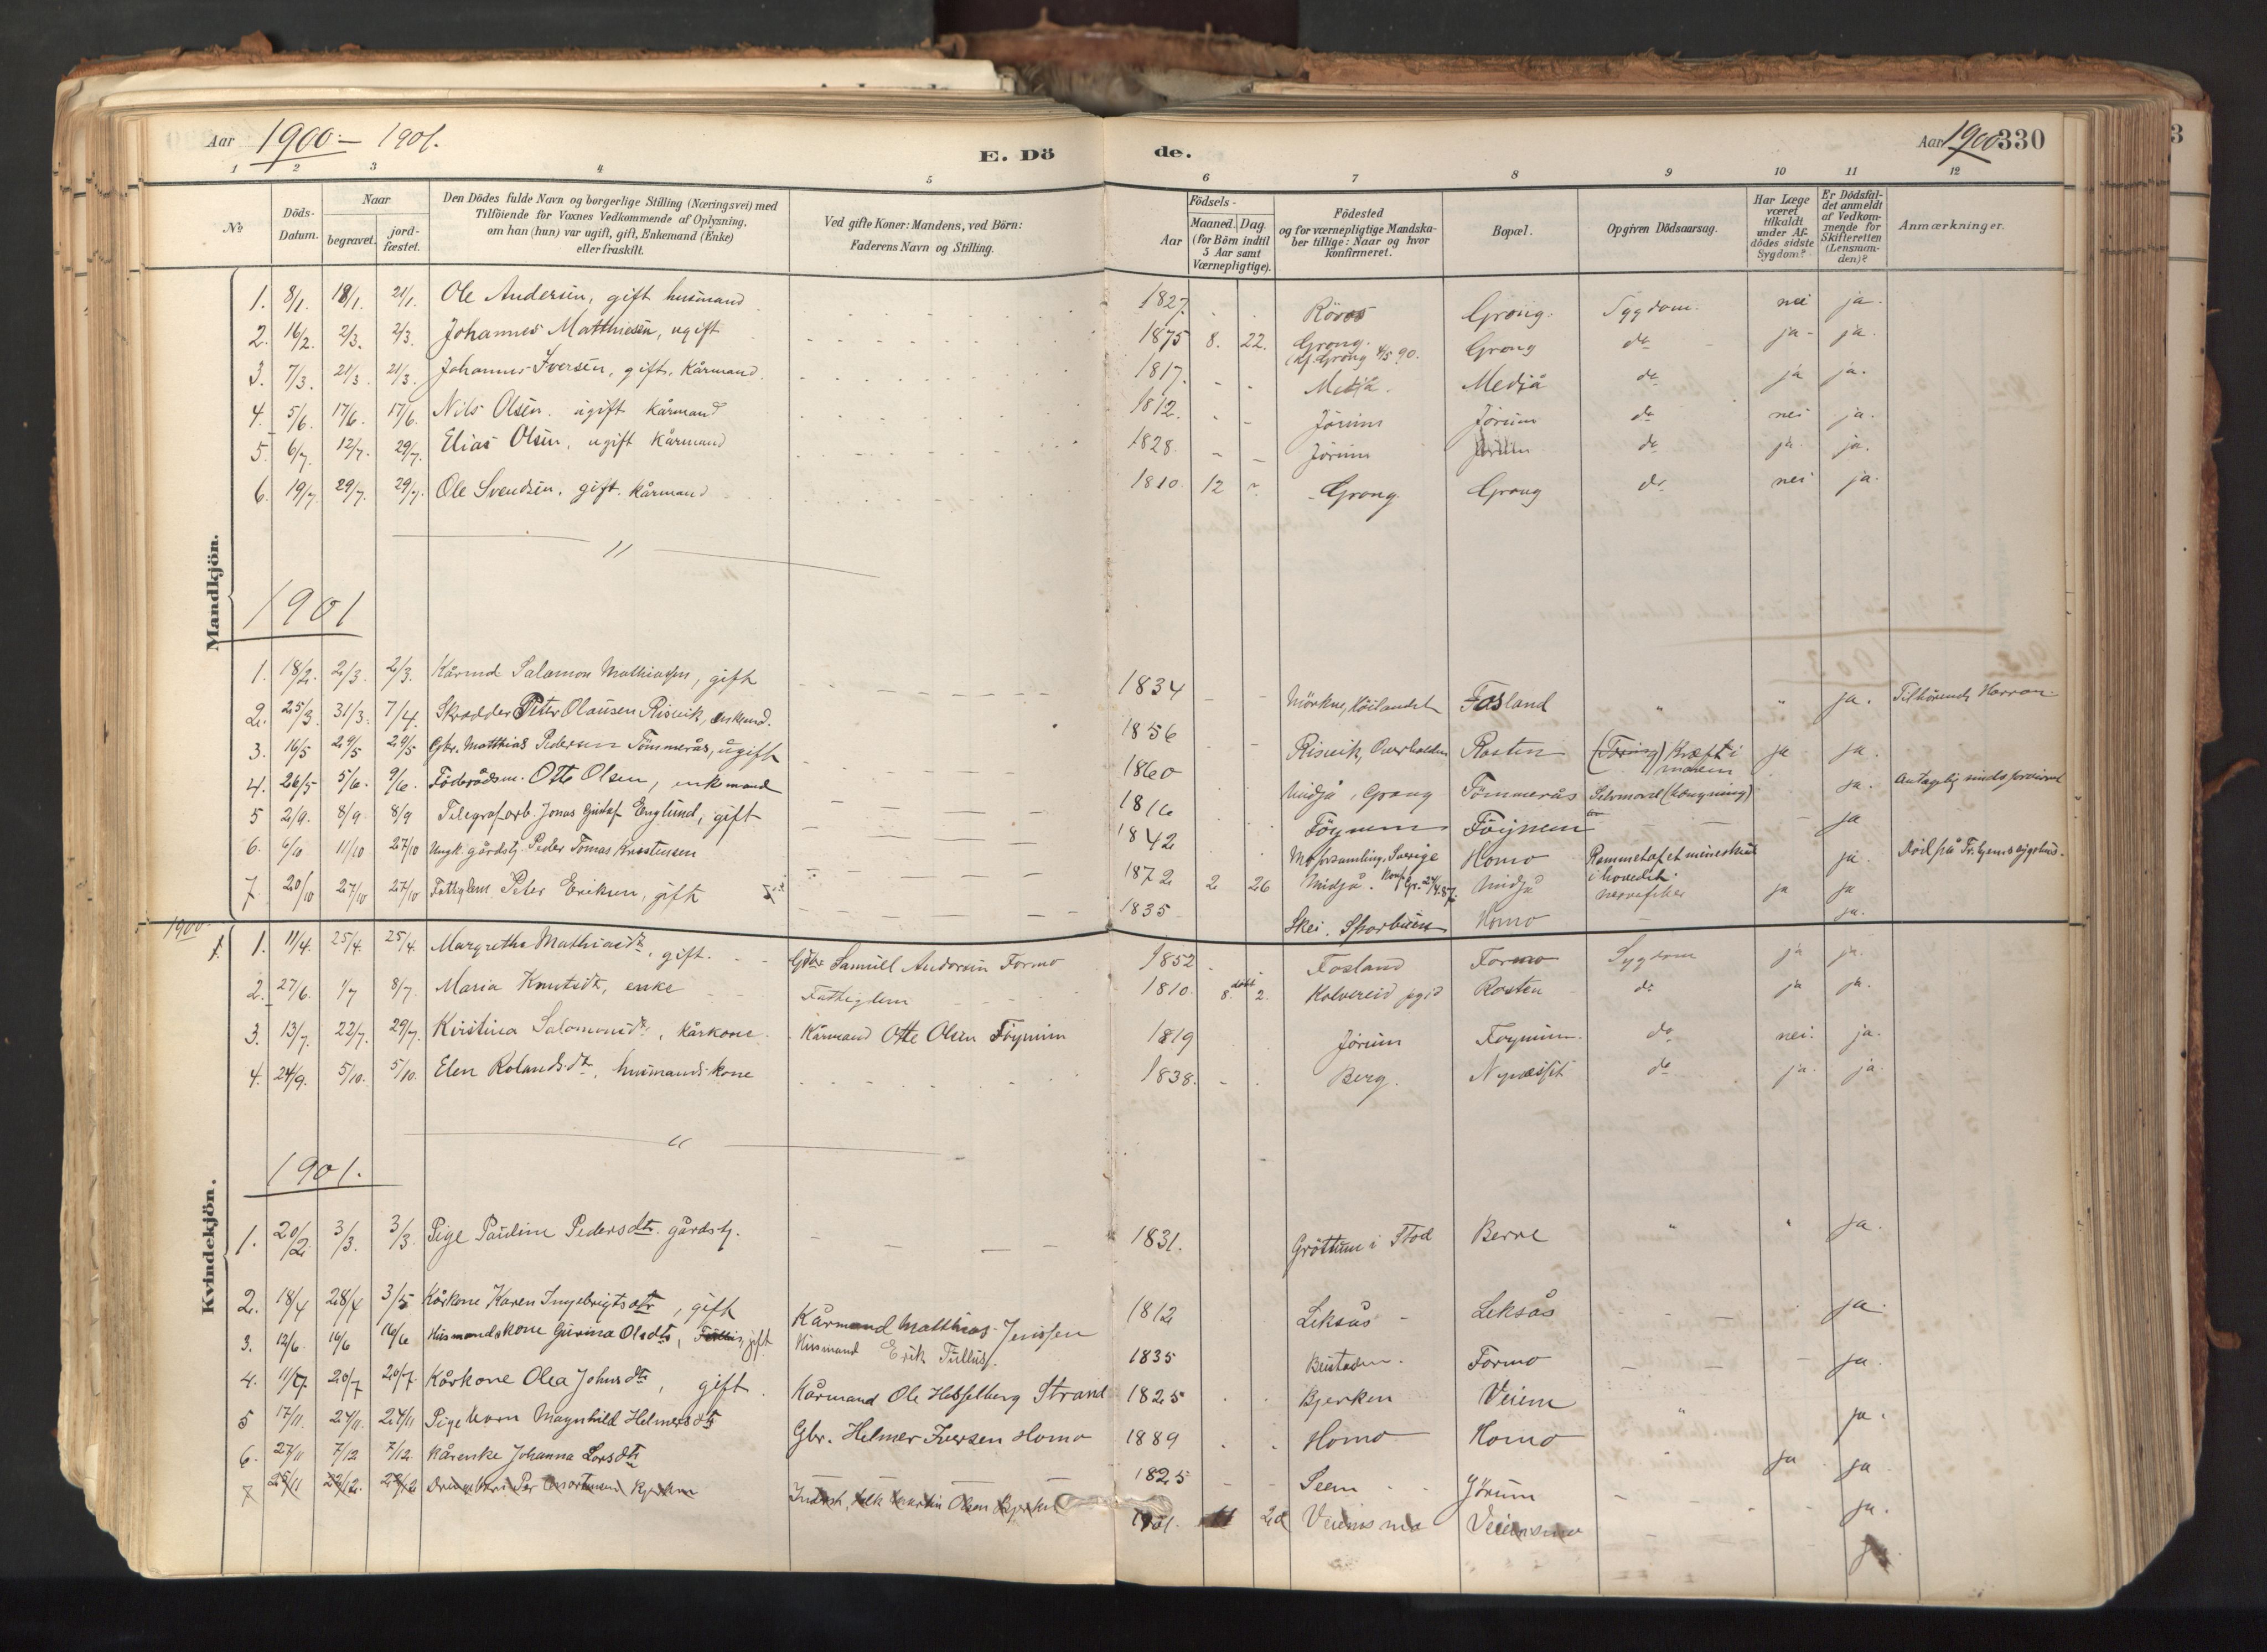 Aar 1900 - 1901.
E. Dö de.
Aar 1900 330
1 2 3 4 5 6 7 8 9 10 11 12
No
Döds-Datum.
Naar
begravet.
jord-fæstet.
Den Dödes fulde Navn og borgerlige Stilling (Næringsvei) med
Tilföiende for Voxnes Vedkommende af Oplysning,
om han (hun) var ugift, gift, Enkemand (Enke)
eller fraskilt.
Ved gifte Koner: Mandens, ved Börn:
Faderens Navn og Stilling.
Födsels-
Aar
Maaned. Dag
(for Börn indtil
5 Aar samt
Værnepligtige).
Födested
og for værnepligtige Mandska-
ber tillige: Naar og hvor
konfirmeret.
Bopæl.
Opgiven Dödsaarsag.
Har Læge
været
tilkaldt
under Af-
dödes sidste
Sygdom?
Er Dödsfal-
det anmeldt
af Vedkom-
mende for
Skifteretten
(Lensman-
den)?
Anmærkninger.
Mandkjön.
1. 8/1. 18/1. 21/1. Ole Andersen, gift husmand 1827. Röros Grong. Sygdom. nei ja.
2. 16/2. 2/3. 2/3. Johannes Matthiesen, ugift 1875 8. 22. Grong. Grong do ja - ja.
3. 7/3. 21/3. 21/3. Johannes Iversen, gift. Kårmand. 1817. Medjå. Medjå do ja ja.
4. 5/6. 17/6. 17/6. Nils Olsen. ugift Kårmand 1812. Jörum Jörum do nei ja.
5. 6/7. 12/7. 29/7. Elias Olsen, ugift Kårmand 1828. Jörum Jörum do ja ja.
6. 19/7 29/7. 29/7. Ole Svendsen, gift. Kårmand 1810. 12 Grong Grong do nei ja.
1901
1. 18/2. 2/3. 2/3. Kårmd Salamon Mathiassen, gift 1834 Mörkne, Höilandet Fosland " " ja. Tilhörende Harran.
2. 25/3. 31/3. 7/4. Skrædder Peter Olausen Risvik, enkemd. 1856 Risvik, Overhalden Rosten Kræft i maven ja ja.
3. 16/5 29/5 29/5 Gbr. Matthias Pedersen Tömmerås, ugift 1860 Medjå, Grong Tömmerås Selvmord (hængning) ja. Antagelig sindsforvirret
4. 26/5 5/6. 9/6. Föderådsm. Otto Olsen, enkemand 1816 Föynem Föynem ja
5 2/9. 8/9. 8/9 Telegrafarb. Jonas Gustaf Englund, gift 1842 Sverige Homo Rammet af et mineskud i hovedet ja.
6. 6/10 11/10 27/10 Ungk. gårdstj. Peder Tomas Kristensen 1872 2 26 Medjå. Konf. Gr. 24/4.87. Medjå nervefeber ja ja
7. 20/10 27/10 27/10 Fattiglem Peter Eriksen, gift 1835 Skei. Sparbuen Homo ja.
Kvindekjön.
1900
1. 11/4. 25/4. 25/4. Margretha Mathiasdtr, gift. Gdbr Samuel Andersen Formo 1852 Fosland Formo Sygdom ja ja.
2. 27/6. 1/7 8/7. Maria Knutsdtr, enke Fattiglem 1810. 8. döbt 2. Kolvereid pgjd Rosten do ja ja.
3. 13/7. 22/7. 29/7. Kirstina Salomonsdtr, kårkone. Kårmand Otte Olsen Föynum 1819 Jörum Foynum. do nei. ja.
4. 24/9. 5/10. 5/10. Elen Rolandsdtr, husmandskone 1838. Berg. Nyneset do ja. ja.
1901.
1. 20/2. 3/3. 3/3. Pige Pauline Pedersdtr. gårdstj. 1831. Gröttum i Stod Berre " " ja.
2. 18/4 28/4 3/5 Kårkone Karen Ingebrigtsdtr, gift Kårmand Matthias Jenssen 1812 Leksås Leksås ja.
3. 12/6. 16/6 16/6 Husmandskone Gurina Olsdtr, gift Husmand Erik Tullus. 1835 Bustaden. Formo ja.
4. 11/7 20/7 20/7. Kårkone Olea Johnsdtr, gift. Kårmand Ole Hesselberg Strand 1825 Bjerken Veiem " ja.
5 17/11. 24/11. 24/11 Pigebarn Magnhild Helmersdtr Gbr. Helmer Iversen Homo 1889 Homo Homo ja ja
6. 27/11 7/12 7/12 Kårenke Johanna Larsdtr 1825 Seem Görum ja.
7 25/11 29/12. 29/12 Drengebarn Per Martin Olsen Bjerken 1901. 11 Veiemsmo Veiemsmo ja.